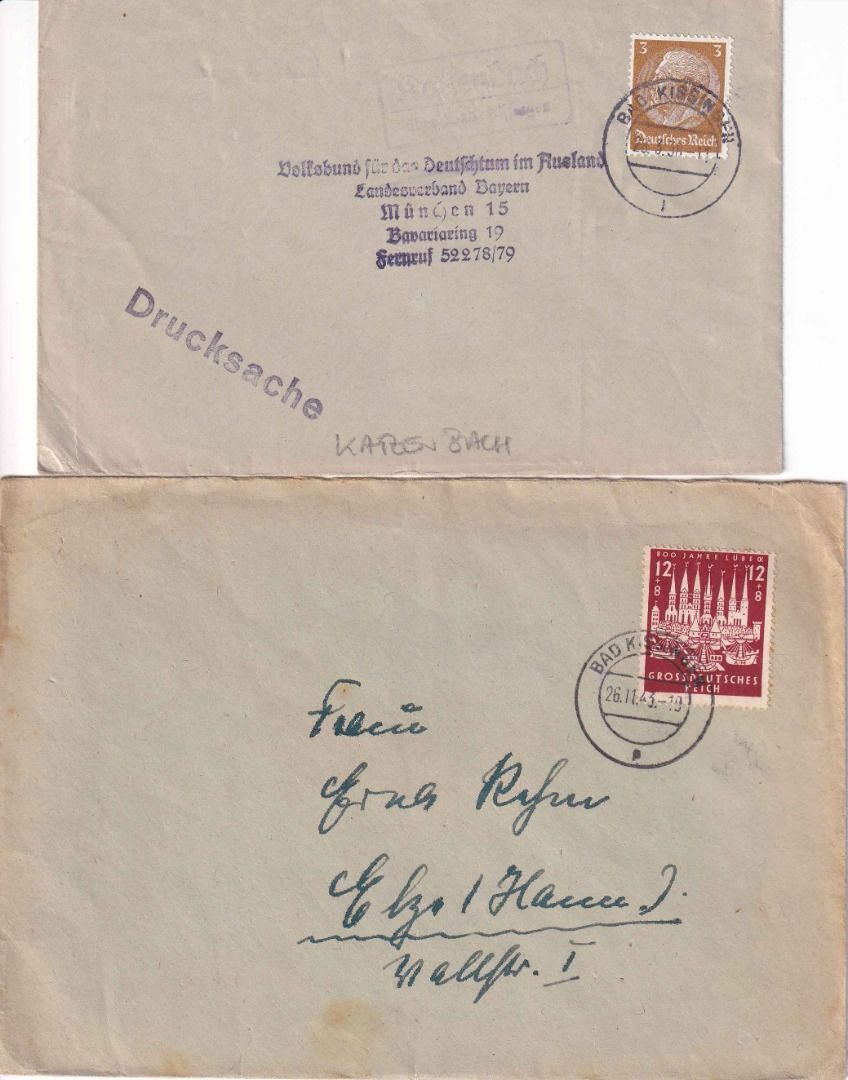 3 3
Deutsches Reich
BAD KISSINGEN
i
Volksbund für das Deutschtum im Ausland
Landesverband Bayern
München 15
Bavariaring 19
Fernruf 52278/79
Drucksache
KATZENBACH
800 JAHRE LÜBECK
12 12
+ +
8 8
GROSSDEUTSCHES
REICH
BAD KISSINGEN
26.11.43.-19
p
Frau
Erna Rehm
Elze (Hann).
Wallstr. I